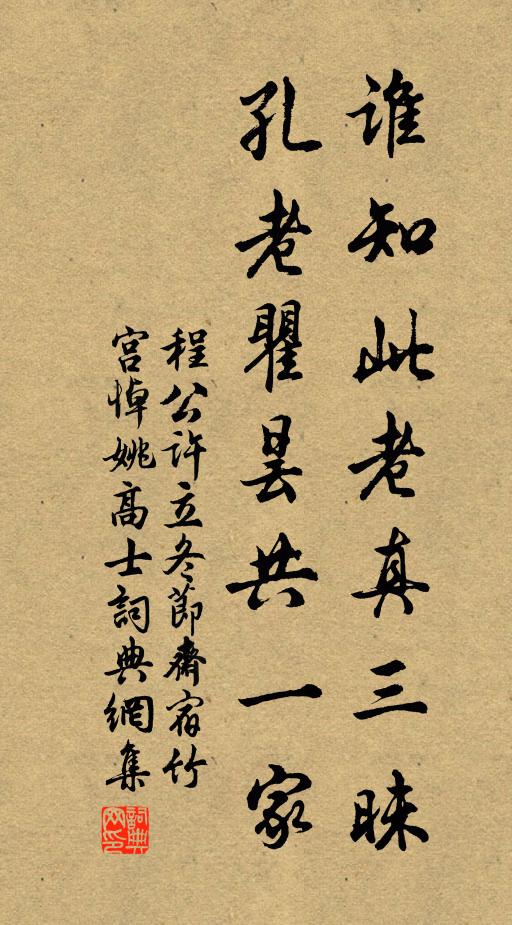 谁知此老真三昧
孔老瞿昙共一家
程公许立冬節齋宿竹
宫悼姚高士詞典網集
詞典网印